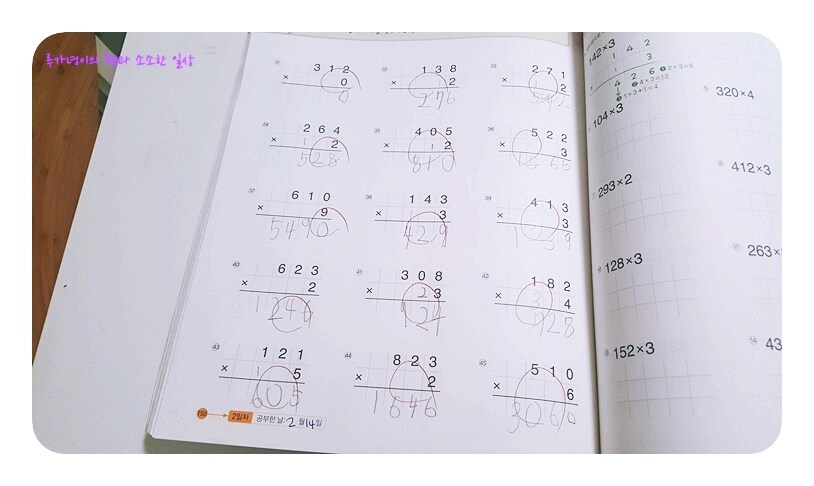 루가형이의 소소한 일상
31 32 33
312 138 271
× 0 × 2 × 2
0 276 542
34 35 36
264 405 522
× 2 × 2 × 3
528 810 1566
37 38 39
610 143 413
× 9 × 3 × 3
5490 429 1239
40 41 42
623 308 182
× 2 × 3 × 4
1246 924 728
43 44 45
121 823 510
× 5 × 2 × 6
605 1646 3060
150 2일차 공부한 날: 2월 14일
142×3
1 4 2
3
4 2 6
❶ 2×3=6
❷ 4×3=12
❸ 1×3+1=4
104×3
320×4
293×2
412×3
128×3
263×
152×3
43